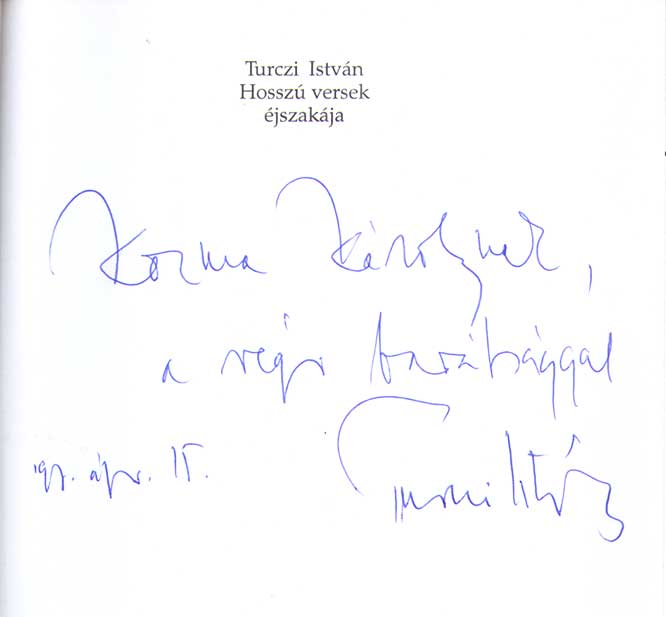 Turczi István
Hosszú versek
éjszakája
Kozma Károlynak,
a régi barátsággal
'97. ápr. 15.
Turczi István